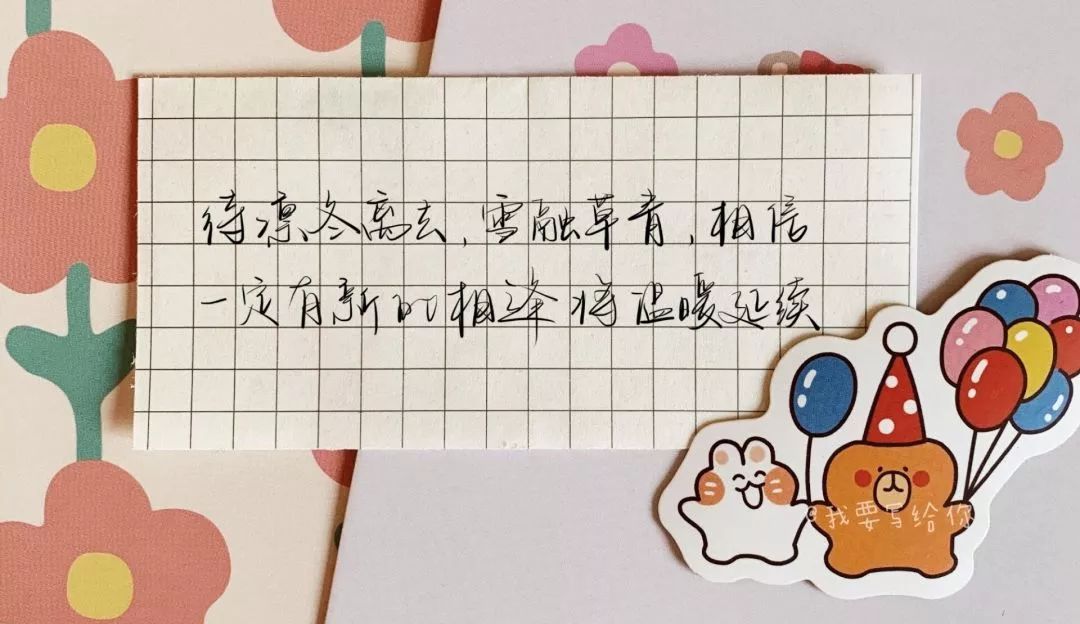 待凛冬离去，雪融草青，相信
一定有新的相逢将温暖延续
@我要写给你